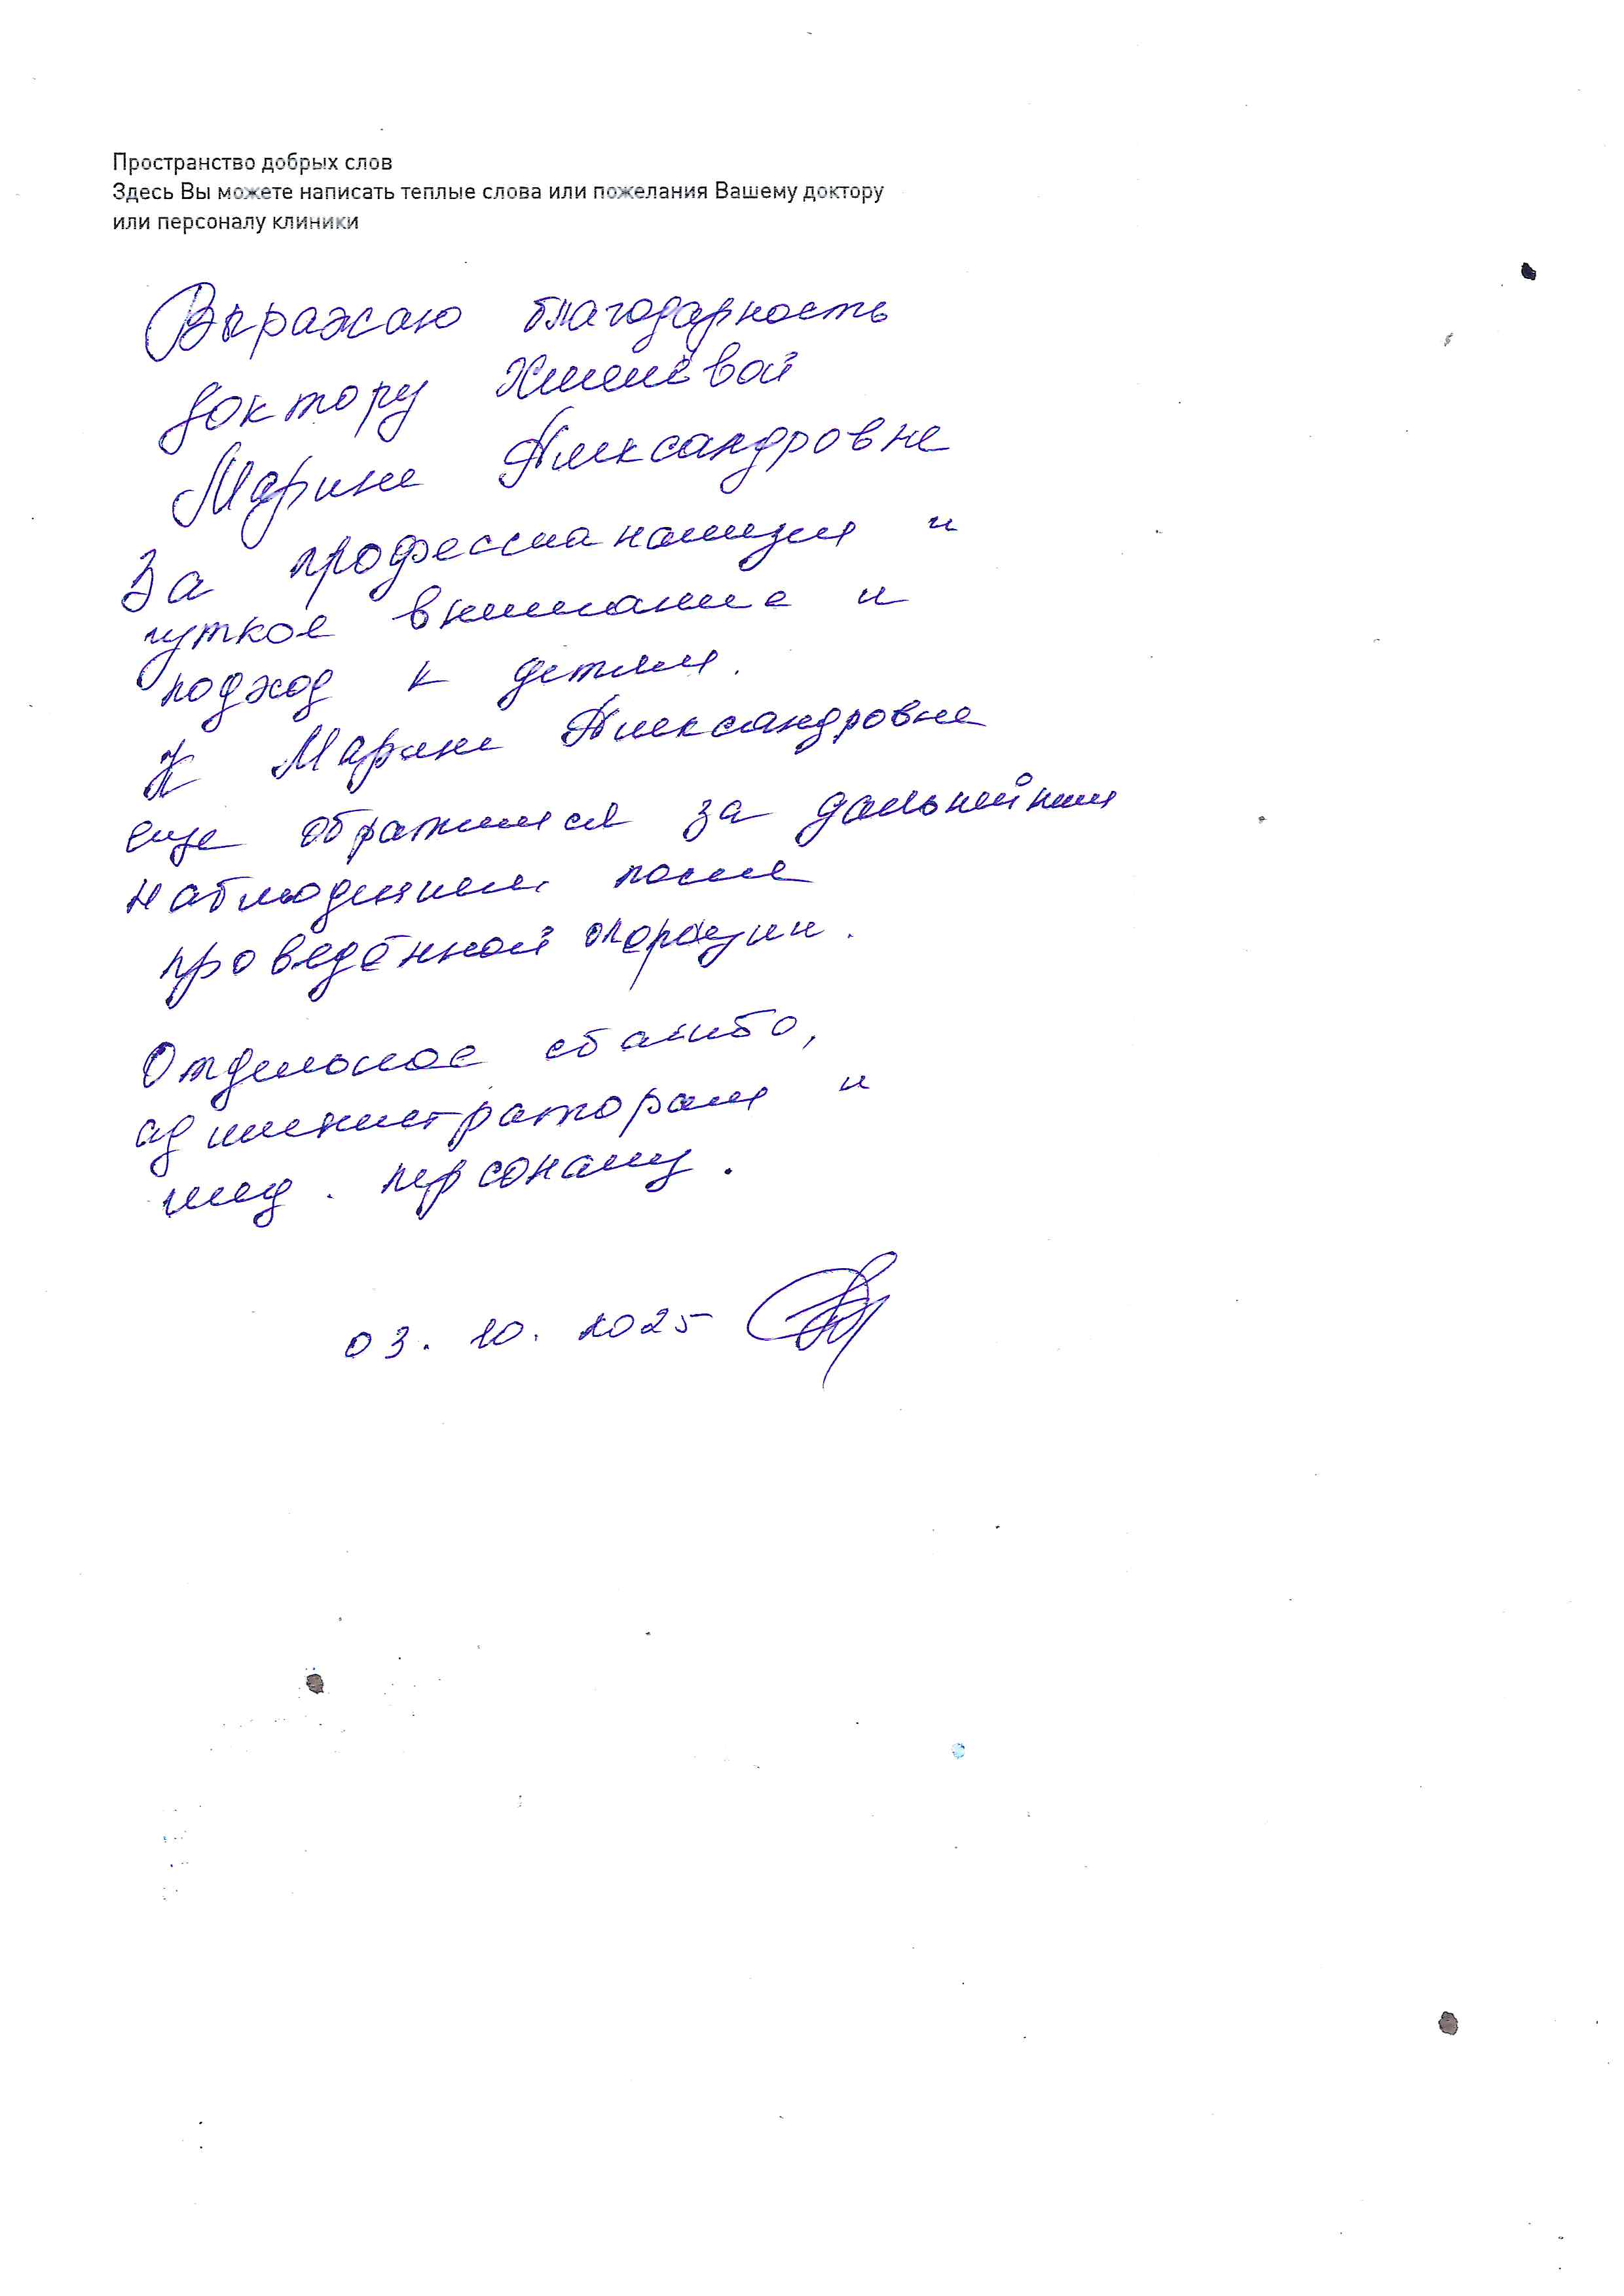 Пространство добрых слов
Здесь Вы можете написать теплые слова или пожелания Вашему доктору
или персоналу клиники
Выражаю благодарность
доктору
Марине Александровне
За профессианализм и
чуткое внимание и
подход к детям.
К Марине Александровне
еще обратимся за дальнейшим
наблюдением после
проведённой операции.
Отдельное спасибо,
администраторам и
мед. персоналу.
03.10.2025